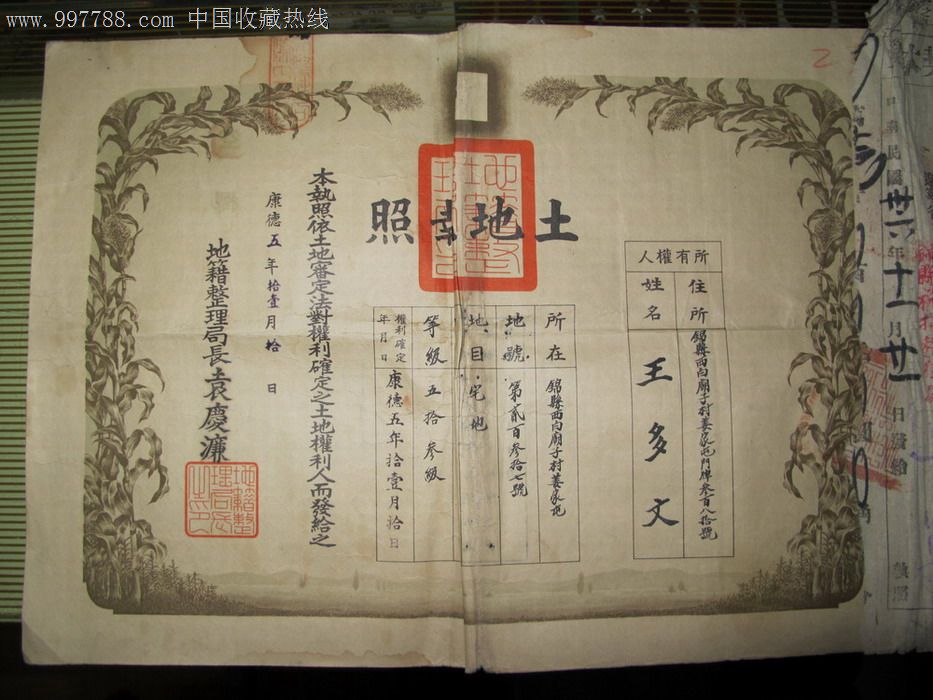 www.997788.com 中国收藏热线
土地執照
所有權人
住所 錦縣西向廟子村姜家屯門牌叁百八拾號
姓名 王多文
所在 錦縣西向廟子村姜家屯
地號 第貳百參拾七號
地目 宅地
等級 五拾參級
權利確定年月日 康德五年拾壹月拾日
本執照依土地審定法對權利確定之土地權利人而發給之
康德五年拾壹月拾日
地籍整理局長袁慶濂
地籍整理局長之印
中華民國卅六年十一月廿日發給
執照